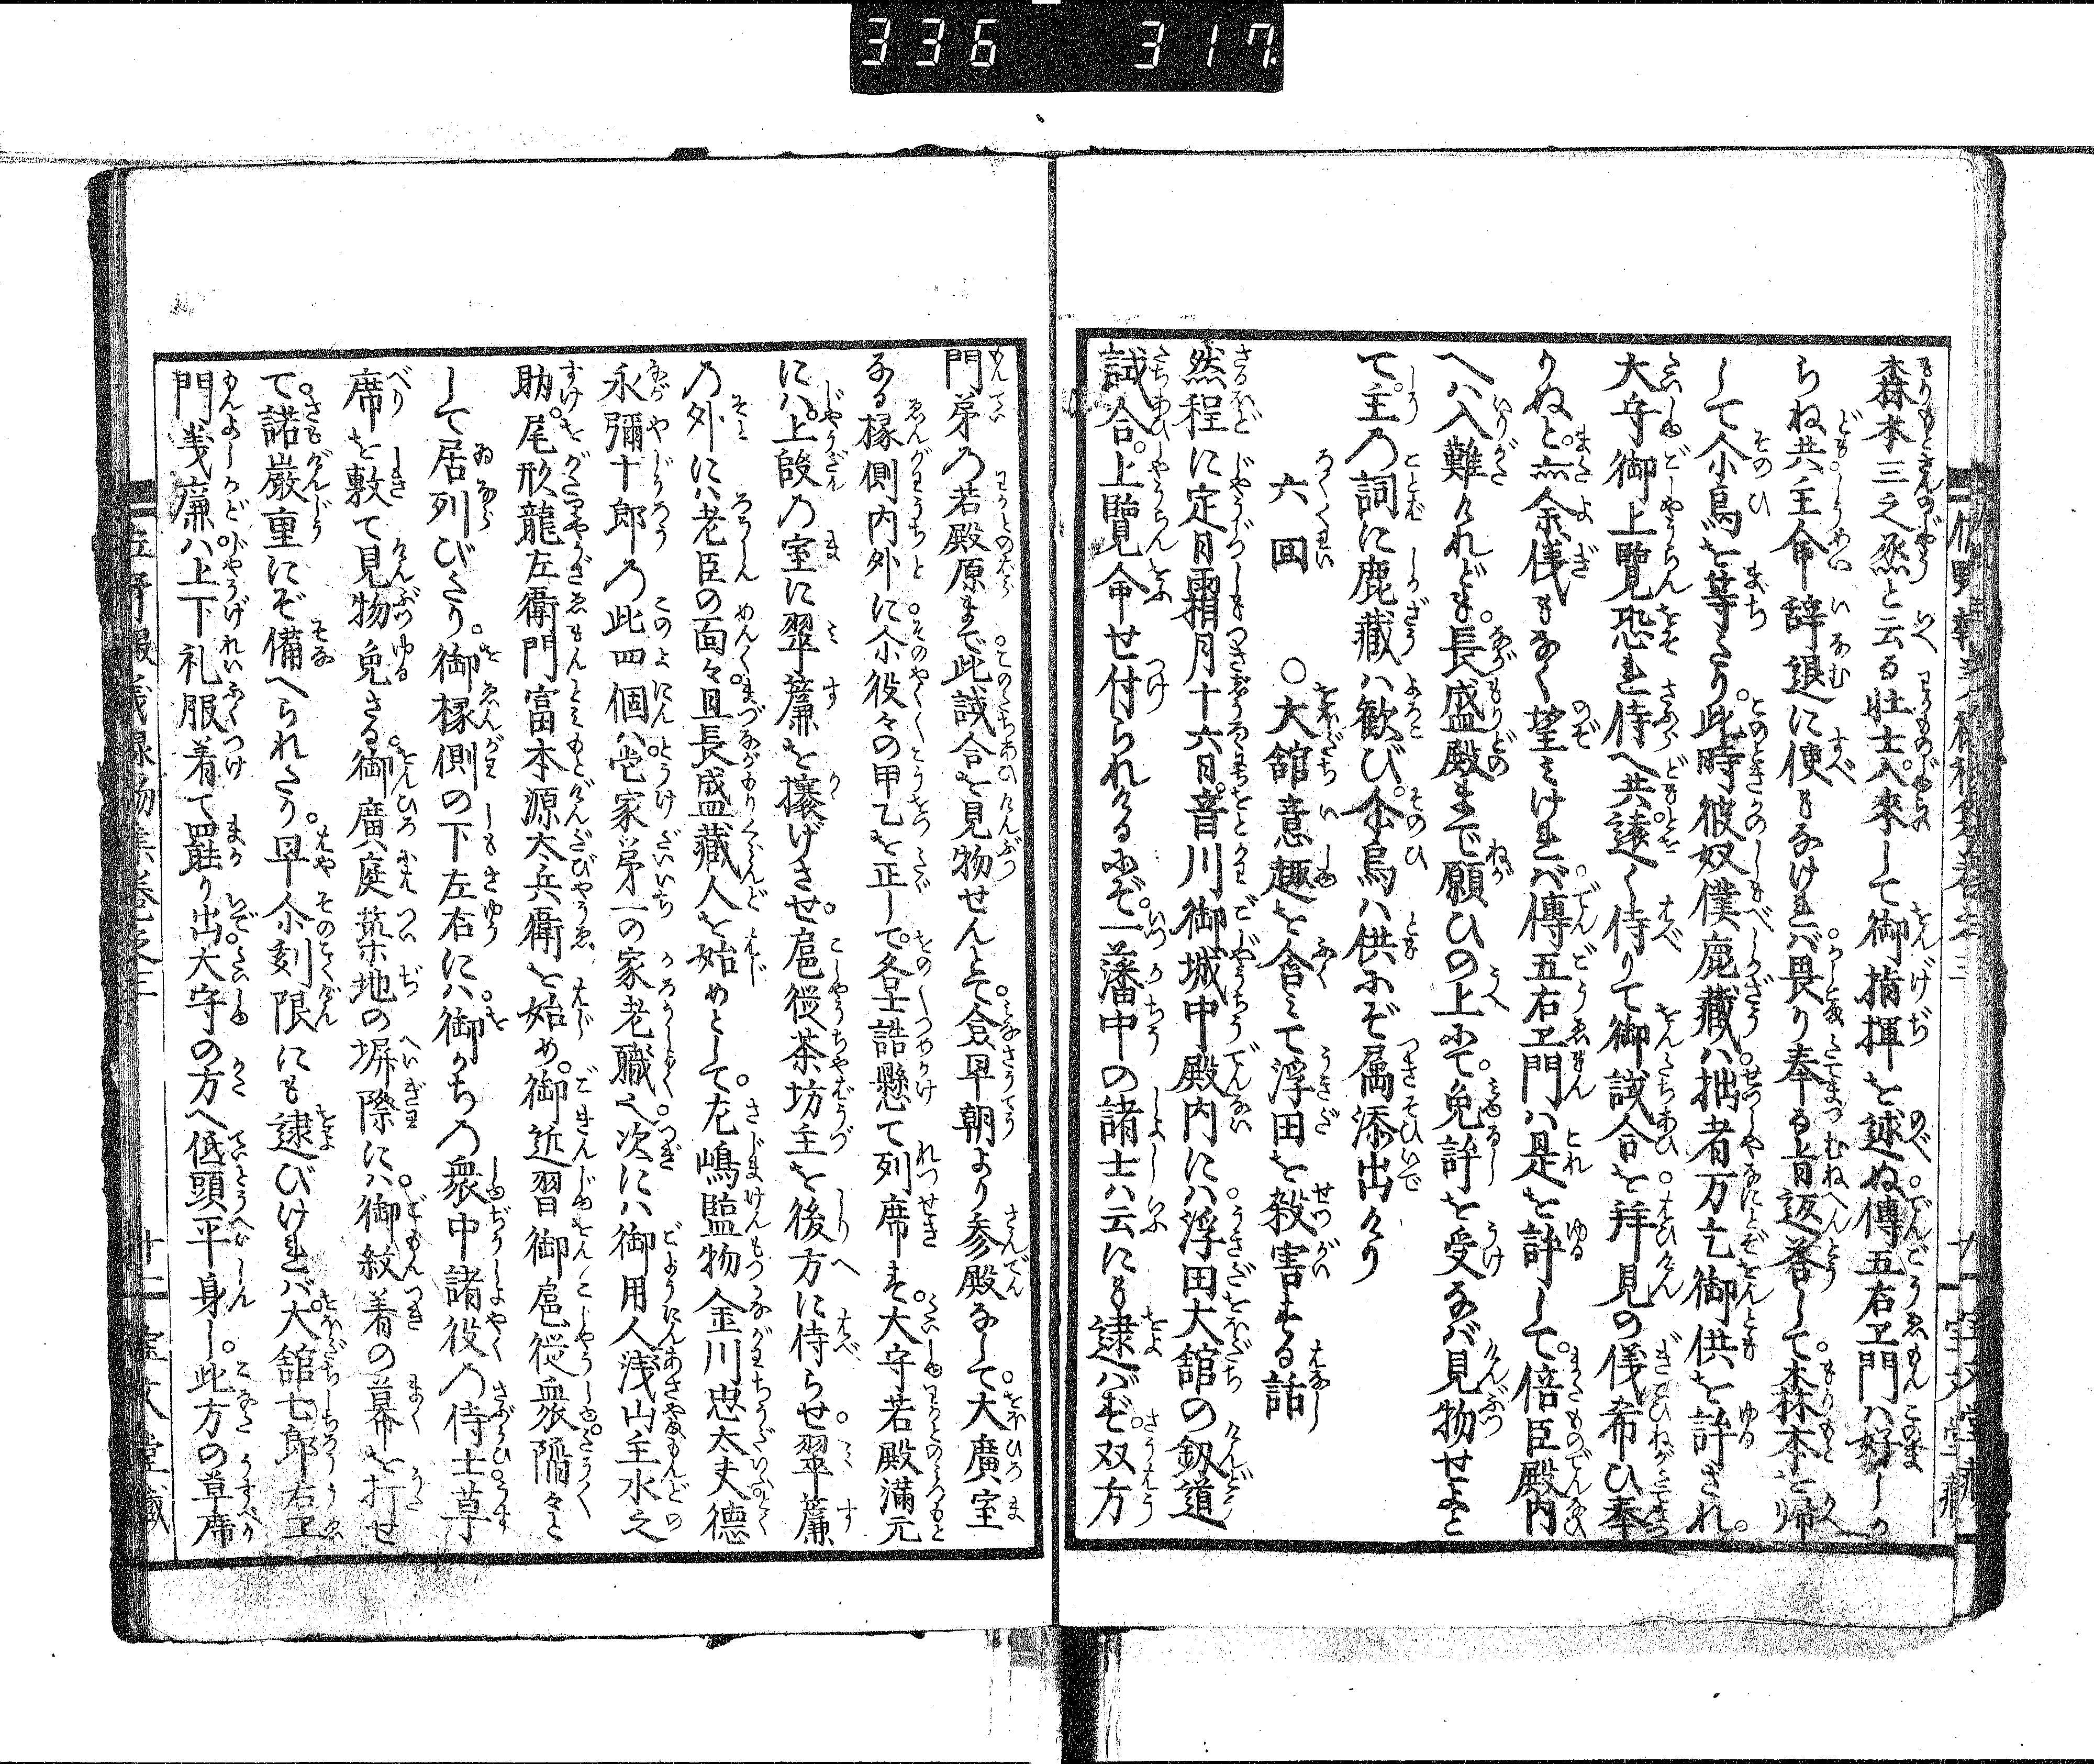 336 317
森本三之烝と云る壮士入來して御指揮を述ぬ傳五右エ門ハ好しか
らね共主命辞退に便もなけれバ畏り奉る旨返答して森本を帰
して尒烏を等たり。此時彼奴僕鹿藏ハ拙者万乞御供を許され。
大守御上覽恐れ侍へ共遠く侍りて御試合を拜見の儀希ひ奉
りぬと。無余儀もなく望みけれバ傳五右エ門ハ是を許して。倍臣殿内
へハ入難けれども。長盛殿まで願ひの上にて。免許を受なバ見物せよと
て。主の詞に鹿藏ハ歓び。尒烏ハ供にぞ属添出けり
六回 ○大舘意趣を含みて浮田を殺害する話
然程に定日霜月十六日。音川御城中殿内にハ浮田大舘の釼道
試合。上覽命せ付られけるにぞ。一藩中の諸士ハ云にも逮バず。双方
門弟の若殿原まで此試合を見物せんとて。僉早朝より参殿なして。大廣室
なる椽側内外に尒役々の甲乙を正して。各士詰懸て列席す。大守若殿滿元
にハ。上段の室に翠簾を攘げさせ。扈從茶坊主を後方に侍らせ。翠簾
の外にハ老臣の面々。且長盛藏人を始めとして。左嶋監物金川忠太夫德
永彌十郎の此四個ハ。當家第一の家老職也。次にハ御用人浅山主水之
助。尾形龍左衛門富本源太兵衛を始め。御近習御扈從衆隔々と
して居列びたり。御椽側の下左右にハ。御かちの衆中諸役の侍士草
席を敷て見物免さる。御廣庭築地の塀際にハ。御紋着の幕を打せ
て。諾嚴重にぞ備へられたり。早尒刻限にも逮びけれバ。大舘七郎右エ
門義廉ハ上下礼服着て罷り出。大守の方へ低頭平身し。此方の草席